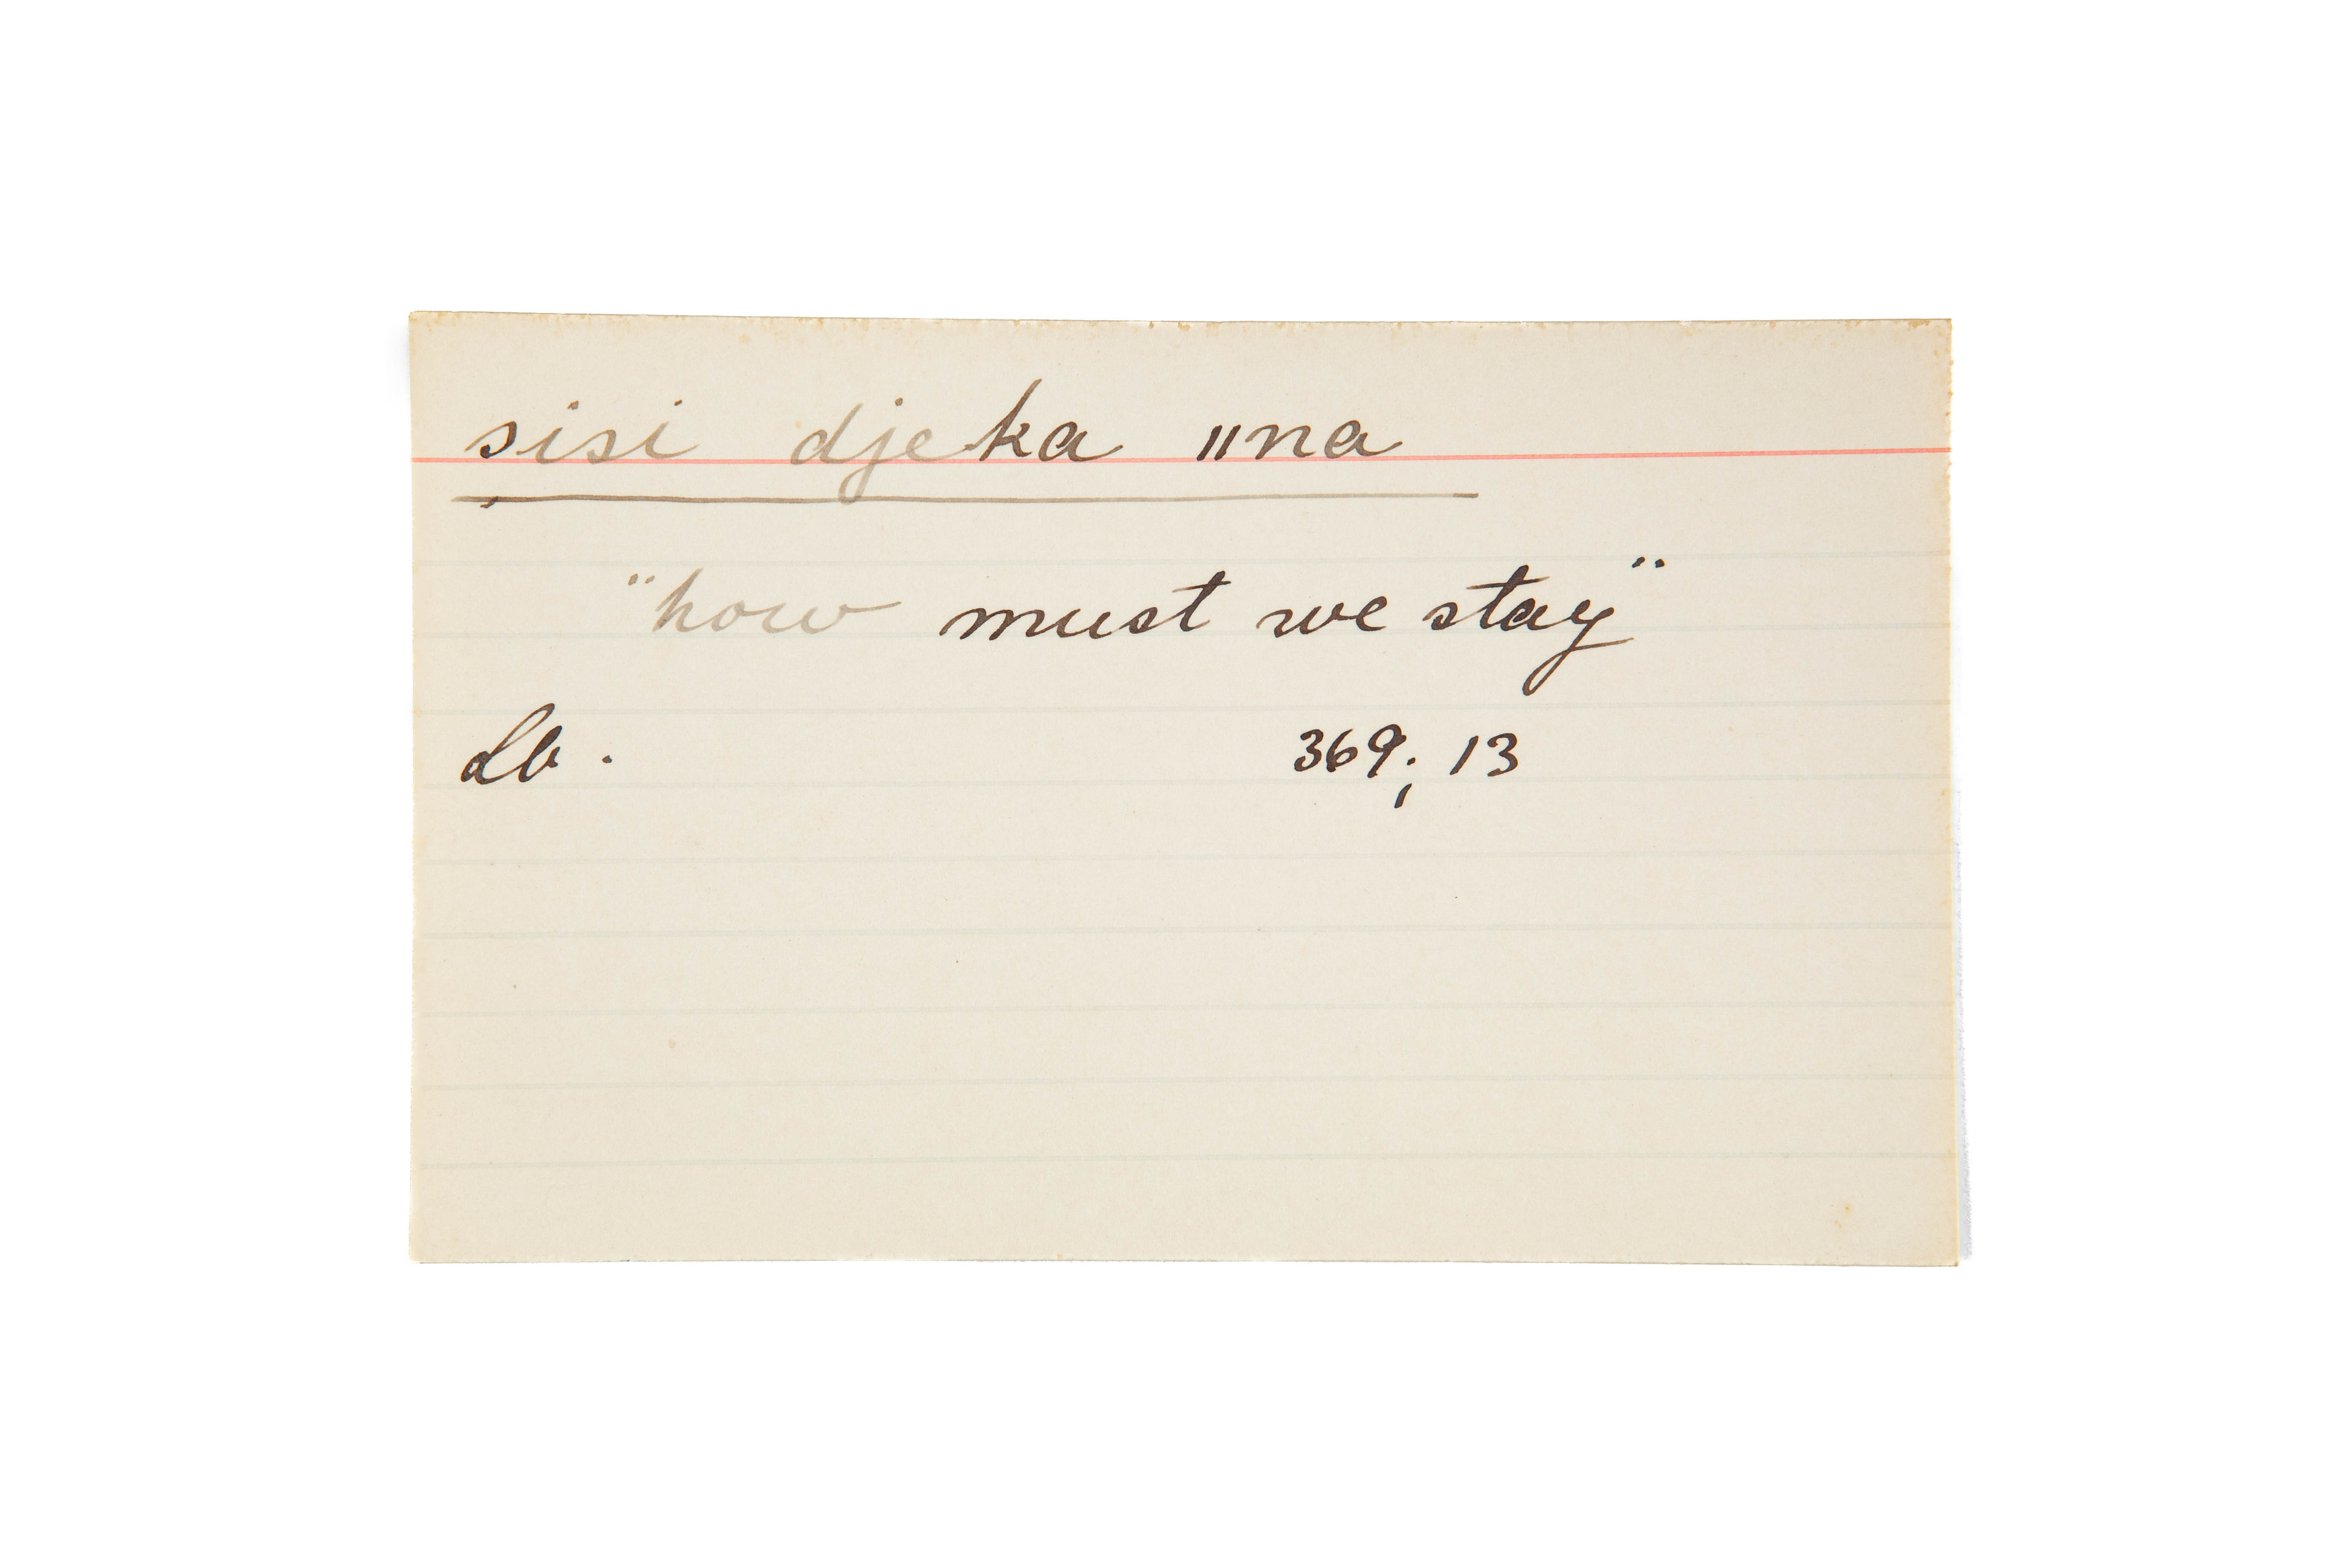 sisi djeka ǁna
"how must we stay"
Lb. 369; 13